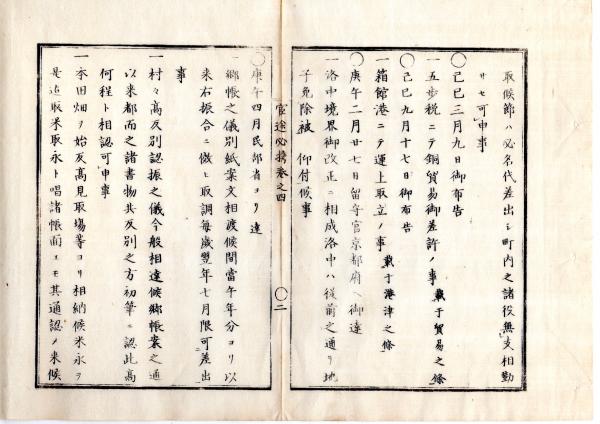 取候節ハ必名代差出シ町内之諸役無支相勤
サセ可申事
〇己巳三月九日御布告
一五歩税ニテ銅貿易御差許ノ事 載于貿易之條
〇己巳九月十七日御布告
一箱館港ニテ運上取立ノ事 載于港津之條
〇庚午二月廿七日留守官京都府ヘ御達
一洛中境界御改正ニ相成洛中ハ從前之通リ地
子免除被 仰付候事
官途必携卷之四
〇二
〇庚午四月民部省ヨリ達
鄉帳之儀別紙案文相渡候間當午年分ヨリ以
来右振合ニ傚ヒ取調每歲翌年七月限可差出
事
一村々高反別認振之儀今般相達候鄉帳案之通
以来都而之諸書物共反別之方初筆ニ認此高
何程ト相認可申事
一本田畑ヲ始反高見取場等ヨリ相納候米永ヲ
是迄取米取永ト唱諸帳面ニモ其通認メ来候